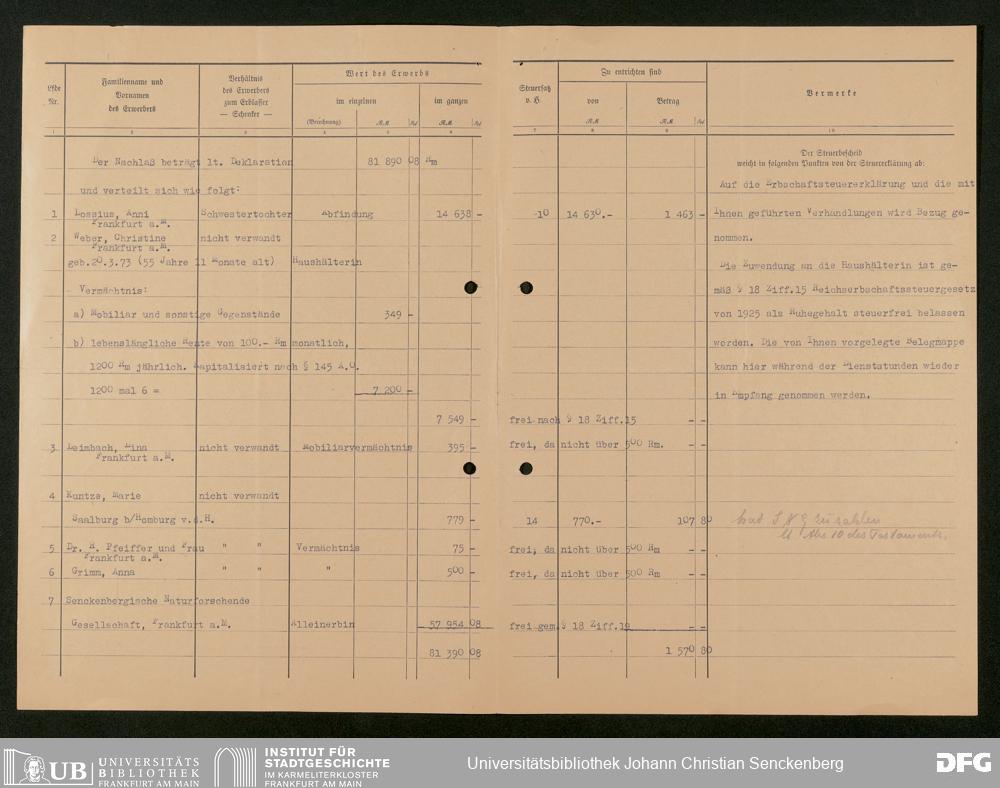 Lfde Nr.
Familienname und Vornamen des Erwerbers
Verhältnis des Erwerbers zum Erblasser — Schenker —
Wert des Erwerbs
im einzelnen
(Bezeichnung) R.M. Pf
im ganzen
R.M. Pf
1 2 3 4 5 6
Der Nachlaß beträgt lt. Deklaration 81 890 08 Rm
und verteilt sich wie folgt:
1 Lossius, Anni Schwestertochter Abfindung 14 638 -
Frankfurt a.M.
2 Weber, Christine nicht verwandt
Frankfurt a.M.
geb.20.3.73 (55 Jahre 11 Monate alt) Haushälterin
Vermächtnis:
a) Mobiliar und sonstige Gegenstände 349 -
b) lebenslängliche Rente von 100.- Rm monatlich,
1200 Rm jährlich. Kapitalisiert nach § 145 A.O.
1200 mal 6 = 7 200 -
7 549 -
3 Leimbach, Lina nicht verwandt Mobiliarvermächtnis 395 -
Frankfurt a.M.
4 Kuntze, Marie nicht verwandt
Saalburg b/Homburg v.d.H. 779 -
5 Dr. H. Pfeiffer und Frau " " Vermächtnis 75 -
Frankfurt a.M.
6 Grimm, Anna " " " 500 -
7 Senckenbergische Naturforschende
Gesellschaft, Frankfurt a.M. Alleinerbin 57 954 08
81 390 08
Steuersatz v. H.
Zu entrichten sind
von R.M.
Betrag R.M. Pf
Vermerke
7 8 9 10
Der Steuerbescheid
weicht in folgenden Punkten von der Steuererklärung ab:
Auf die Erbschaftsteuererklärung und die mit
10 14 630.- 1 463 - Ihnen geführten Verhandlungen wird Bezug ge-
nommen.
Die Zuwendung an die Haushälterin ist ge-
mäß § 18 Ziff.15 Reichserbschaftssteuergesetz
von 1925 als Ruhegehalt steuerfrei belassen
worden. Die von Ihnen vorgelegte Belegmappe
kann hier während der Dienststunden wieder
in Empfang genommen werden.
frei nach § 18 Ziff.15 - -
frei, da nicht über 500 Rm. - -
14 770.- 107 80
hat S N G zu zahlen
Abs 10 des Testaments.
frei, da nicht über 500 Rm - -
frei, da nicht über 500 Rm - -
frei gem. § 18 Ziff.19 - -
1 570 80
UB UNIVERSITÄTS
BIBLIOTHEK
FRANKFURT AM MAIN
INSTITUT FÜR
STADTGESCHICHTE
IM KARMELITERKLOSTER
FRANKFURT AM MAIN
Universitätsbibliothek Johann Christian Senckenberg
DFG